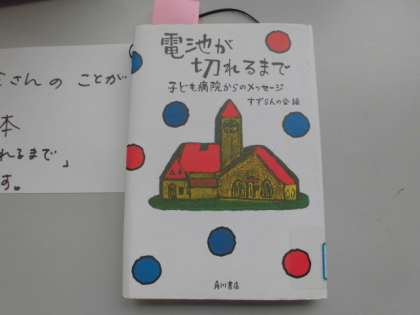 さんの ことが
本
れるまで」
す。
電池が
切れるまで
子ども病院からのメッセージ
すずらんの会 編
角川書店